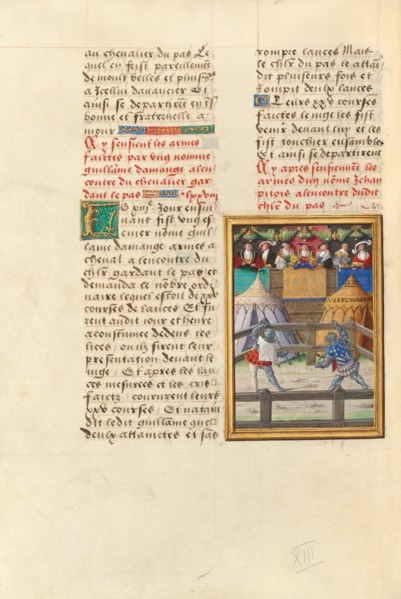 au chevalier du pas Le
quel en feist pareillement
de moult belles et pluss^rs
a Icellui davancier Et
ainsi se departirent en tres
bonne et fraternelle a
mour
Cy sensieut les armes
faictes par ung nomme
guillame damange alen
contre du chevalier gar
dant le pas
xiii^e Jour ensui
uant fist ung es
cuier nome guil
lame damange armes a
cheval a lencontre du
ch^lr gardant le pas et
demanda le nobre ordi
naire lequel estoit de xxv
courses de lances Et fu
rent audit iour et heure
acoustumee dedens les
lices ou ilz firent leur
presentation devant le
iuge Et apres les lan
ces mesurees et les cris
faictz coururent leurs
xxv courses Et nataindi
dit ledit guillame que
deulx attainctes et sans
rompre lances Mais
le ch^lr du pas le attai
dit plusieurs fois et
Rompit deulx lances
Leurs xxv courses
faictes le iuge les fist
venir devant luy et les
fist touchier ensambles
Et ainsi se departirent
Cy apres sensieuvent les
armes dun nome Jehan
pitois alencontre dudit
ch^lr du pas
XIII